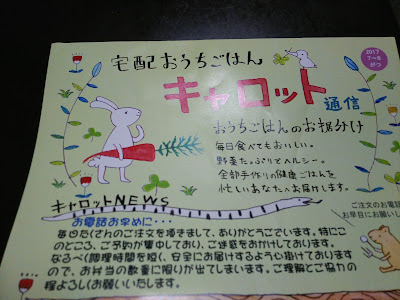 宅配おうちごはん
2017
7〜8
がつ
キャロット通信
おうちごはんのお裾分け
毎日食べてもおいしい。
野菜たっぷりでヘルシー。
全部手作りの健康ごはんを
忙しいあなたへお届けします。
キャロットNEWS
お電話お早めに…
毎日たくさんのご注文を頂きまして、ありがとうございます。特にこ
のところ、ご予約が集中しており、ご迷惑をおかけしております。
なるべく調理時間を短く、安全にお届けするよう心掛けております
ので、お弁当の数量に限りが出てしまいます。ご理解とご協力の
程よろしくお願いいたします。
ご注文のお電話
お早目にお願いし